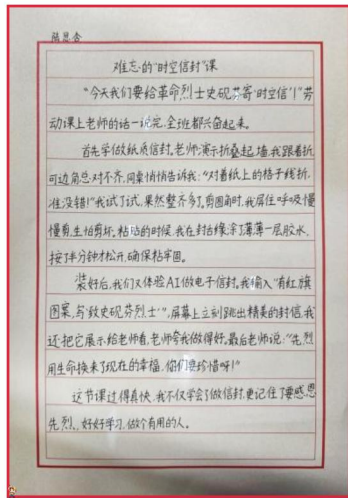 陆思含
难忘的“时空信封”课
“今天我们要给革命烈士史砚芬寄‘时空信’！”劳
动课上老师的话一说完，全班都兴奋起来。
首先学做纸质信封。老师演示折叠起墙，我跟着折，
可边角总对不齐，同桌悄悄告诉我：“对着纸上的格子线折，
准没错！”我试了试，果然整齐多了。剪圆角时，我屏住呼吸慢
慢剪，生怕剪坏，粘贴的时候，我在封舌缘涂了薄薄一层胶水，
按了半分钟才松开，确保粘牢固。
装好后，我们又体验AI做电子信封。我输入“有红旗
图案，写‘致史砚芬烈士’”，屏幕上立刻跳出精美的封信，我
还把它展示给老师看，老师夸我做得好。最后老师说：“先烈
用生命换来了现在的幸福，你们要珍惜呀！”
这节课过得真快，我不仅学会了做信封，更记住了要感恩
先烈、好好学习，做个有用的人。